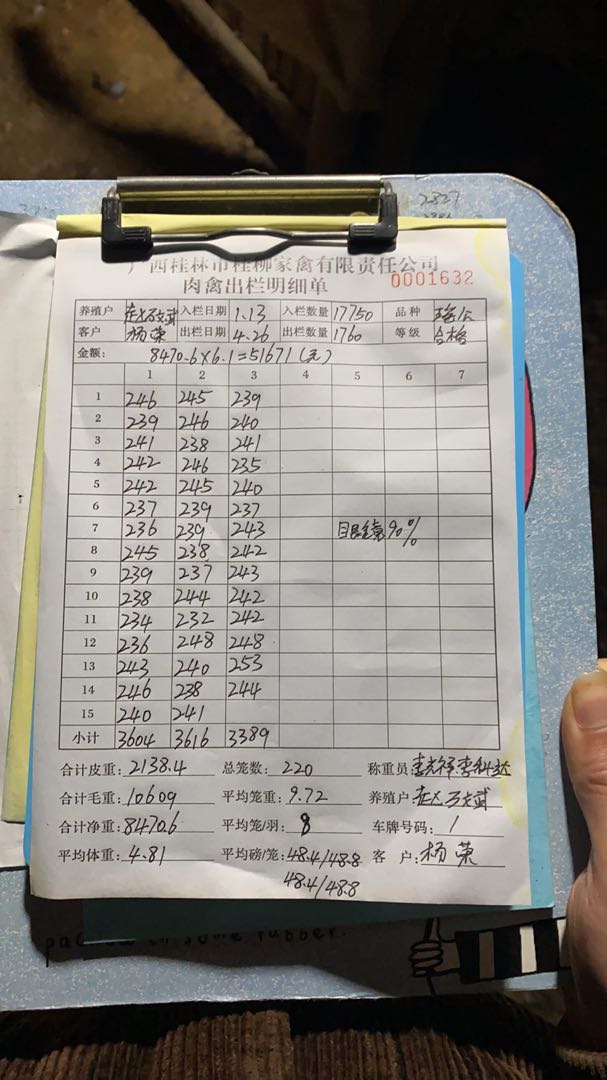 2827
广西桂林市桂柳家禽有限责任公司
肉禽出栏明细单 0001632
养殖户 入栏日期 1.13 入栏数量 17750 品种
客户 杨荣 出栏日期 4.26 出栏数量 1760 等级 合格
金额: 8470.6×6.1=51671(元)
1 2 3 4 5 6 7
1 246 245 239
2 239 246 240
3 241 238 241
4 242 246 235
5 242 245 240
6 237 239 237
7 236 239 243 目镜90%
8 245 238 242
9 239 237 243
10 238 244 242
11 234 232 242
12 236 248 248
13 243 240 253
14 246 238 244
15 240 241
小计 3604 3616 3389
合计皮重: 2138.4 总笼数: 220 称重员:
合计毛重: 10609 平均笼重: 9.72 养殖户
合计净重: 8470.6 平均笼/羽: 8 车牌号码: 1
平均体重: 4.81 平均磅/笼: 48.4/48.8 客户: 杨荣
48.4/48.8
some rubber.